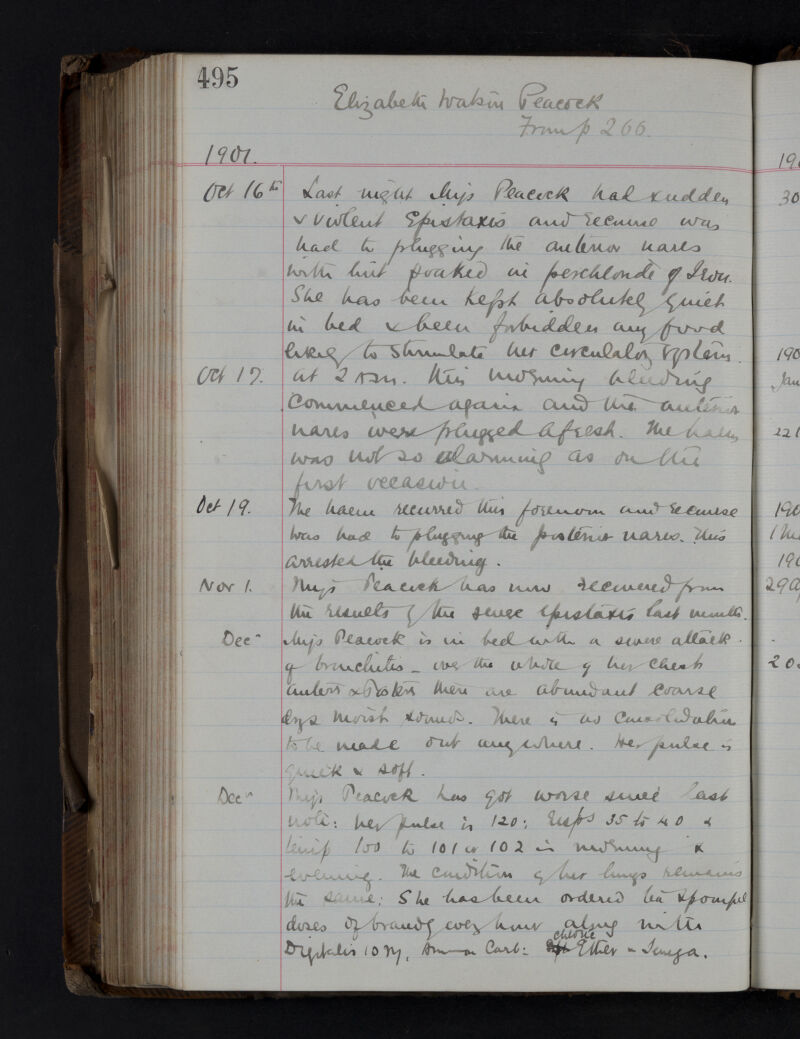 495
Elizabeth Watson Peacock
From p 266.
1901.
Oct 16th Last night Miss Peacock had sudden
& violent Epistaxis and recourse was
had to plugging the anterior nares
with lint soaked in perchloride of Iron.
She has been kept absolutely quiet
in bed & been forbidden any food
likely to stimulate her circulatory system.
Oct 17. at 2 a.m. this morning bleeding
commenced again and the anterior
nares were plugged afresh. The haem
was not so alarming as on the
first occasion.
Oct 19. The haem recurred this forenoon and recourse
was had to plugging the posterior nares. This
arrested the bleeding.
Nov 1. Miss Peacock has now recovered from
the results of the severe epistaxis last month.
Dec Miss Peacock is in bed with a severe attack
of bronchitis - over the whole of her chest
anterr & Posterr there are abundant coarse
moist sounds. There is no consolidation
to be made out anywhere. Her pulse is
quick & soft.
Dec Miss Peacock has got worse since last
note: her pulse is 120: resps 35 to 40 &
temp 100 to 101 or 102 in morning &
evening. The condition of her lungs remains
the same: She has been ordered tea spoonful
doses of brandy every hour along with
Digitalis 10 m, Ammon Carb: chloric Ether & Senega.
190
30
190
Jan
22
190
1 M
190
29 a
20